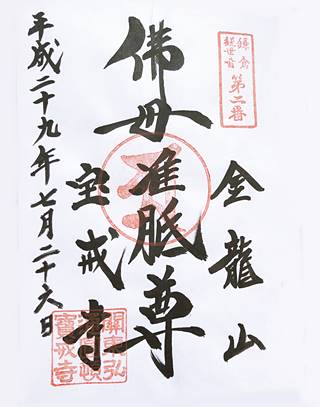 鎌倉
観世音
第二番
金龍山
佛母准胝尊
宝戒寺
平成二十九年七月二十六日
關東弘
頓
寶戒寺